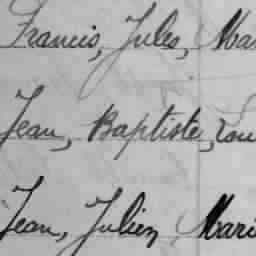 Francis, Jules, Mar
Jean, Baptiste, Lou
Jean, Julien Mari